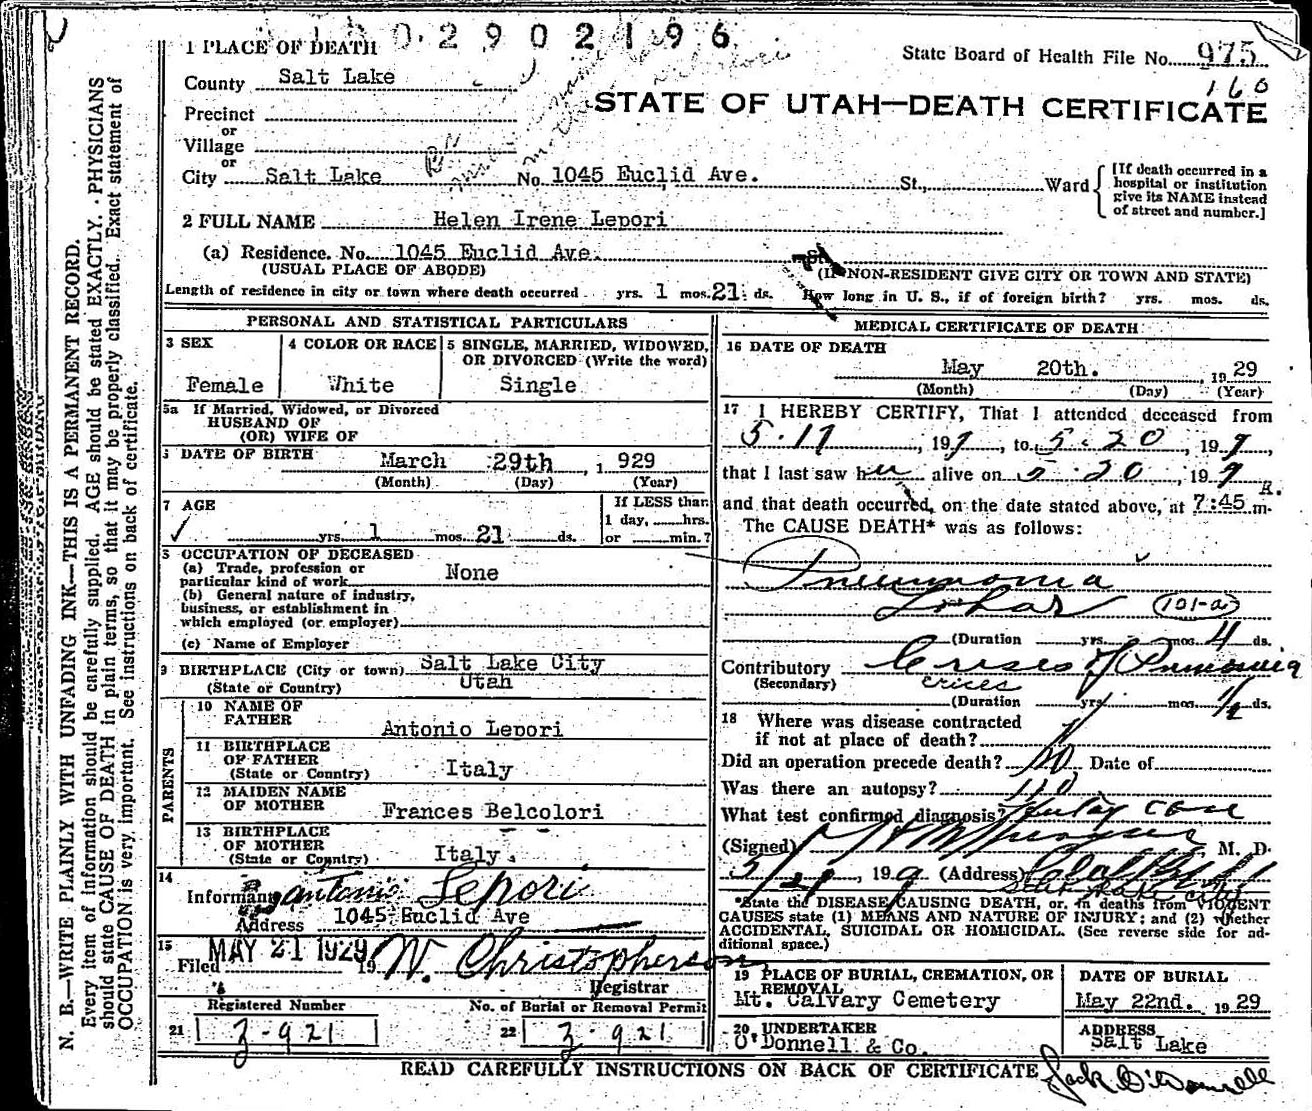 1 3 0 2 9 0 2 1 9 6
1 PLACE OF DEATH
State Board of Health File No. 975
160
County Salt Lake
STATE OF UTAH—DEATH CERTIFICATE
Precinct
or
Village
or
City Salt Lake No. 1045 Euclid Ave. St., Ward
[If death occurred in a
hospital or institution
give its NAME instead
of street and number.]
2 FULL NAME Helen Irene Lepori
(a) Residence. No. 1045 Euclid Ave. St.
(USUAL PLACE OF ABODE)
(IF NON-RESIDENT GIVE CITY OR TOWN AND STATE)
Length of residence in city or town where death occurred yrs. 1 mos. 21 ds. How long in U. S., if of foreign birth? yrs. mos. ds.
PERSONAL AND STATISTICAL PARTICULARS
3 SEX
Female
4 COLOR OR RACE
White
5 SINGLE, MARRIED, WIDOWED,
OR DIVORCED (Write the word)
Single
5a If Married, Widowed, or Divorced
HUSBAND OF
(OR) WIFE OF
6 DATE OF BIRTH March 29th, 1929
(Month) (Day) (Year)
7 AGE
yrs. 1 mos. 21 ds.
If LESS than
1 day, hrs.
or min.?
8 OCCUPATION OF DECEASED
(a) Trade, profession or
particular kind of work None
(b) General nature of industry,
business, or establishment in
which employed (or employer)
(c) Name of Employer
9 BIRTHPLACE (City or town) Salt Lake City
(State or Country) Utah
PARENTS
10 NAME OF
FATHER Antonio Lepori
11 BIRTHPLACE
OF FATHER
(State or Country) Italy
12 MAIDEN NAME
OF MOTHER Frances Belcolori
13 BIRTHPLACE
OF MOTHER
(State or Country) Italy.
14
Informant Antonio Lepori
Address 1045 Euclid Ave
15
Filed MAY 21 1929 19 W. Christopherson
Registrar
Registered Number
21 3-921
No. of Burial or Removal Permit
22 3-921
MEDICAL CERTIFICATE OF DEATH
16 DATE OF DEATH
May 20th. , 1929
(Month) (Day) (Year)
17 I HEREBY CERTIFY, That I attended deceased from
5-17, 1929, to 5-20, 1929,
that I last saw her alive on 5-20, 1929
and that death occurred, on the date stated above, at 7:45 A. m.
The CAUSE DEATH* was as follows:
Pneumonia
Lobar (101-a)
(Duration yrs. mos. 4 ds.
Contributory Crises of Pnumonia
(Secondary) crises
(Duration yrs. mos. 1/2 ds.
18 Where was disease contracted
if not at place of death?
Did an operation precede death? No Date of
Was there an autopsy? No
What test confirmed diagnosis?
(Signed) M. D.
5/21, 1929 (Address)
Salt Lake City
*State the DISEASE CAUSING DEATH, or, in deaths from VIOLENT
CAUSES state (1) MEANS AND NATURE OF INJURY; and (2) whether
ACCIDENTAL, SUICIDAL OR HOMICIDAL. (See reverse side for ad-
ditional space.)
19 PLACE OF BURIAL, CREMATION, OR
REMOVAL
Mt. Calvary Cemetery
DATE OF BURIAL
May 22nd. 1929
20 UNDERTAKER
O'Donnell & Co.
ADDRESS
Salt Lake
READ CAREFULLY INSTRUCTIONS ON BACK OF CERTIFICATE
Jack O'Donnell
N. B.—WRITE PLAINLY WITH UNFADING INK—THIS IS A PERMANENT RECORD.
Every item of information should be carefully supplied. AGE should be stated EXACTLY. PHYSICIANS
should state CAUSE OF DEATH in plain terms, so that it may be properly classified. Exact statement of
OCCUPATION is very important. See instructions on back of certificate.